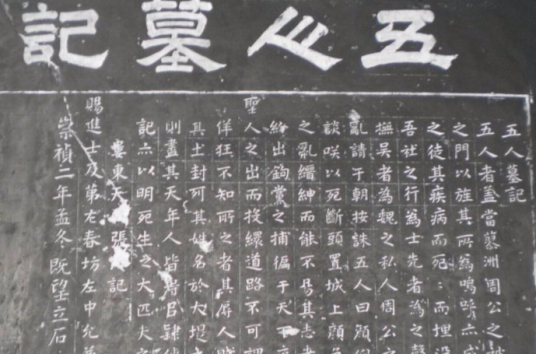 五人墓記
五人墓記
五人者蓋當蓼洲周公之被
之門以旌其所為嗚呼亦
之徒其疾病而死而埋沒
吾社之行為士先者為之聲
撫吳者為魏之私人周公之
亂請于朝按誅五人曰顏佩
談咲以死斷頭置城上顏色
之亂縉紳而能不易其志者
紛出鉤黨之捕徧于天下
聖人之出而投繯道路不可謂
佯狂不知所之者其辱人賤
其土封列其姓名於大堤之
則盡其天年人皆得以隸使
記亦以明死生之大匹夫之
婁東張 記
賜進士及第左春坊左中允
崇禎二年孟冬既望立石